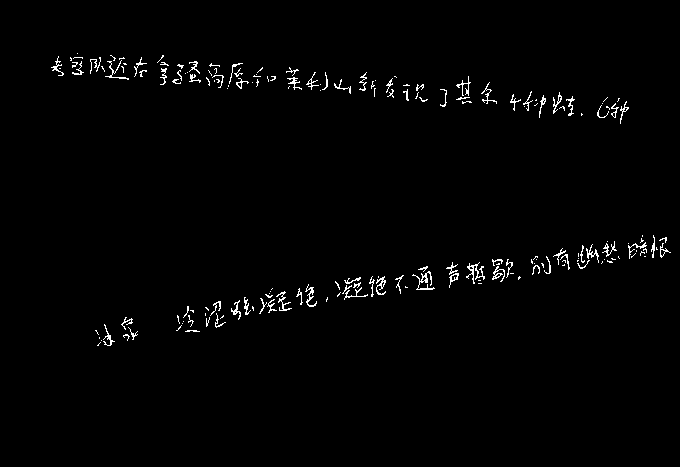 考察队还在拿骚高原和莱利山新发现了其余4种蛙、6种
冰泉 冷涩弦凝绝,凝绝不通声暂歇.别有幽愁暗恨